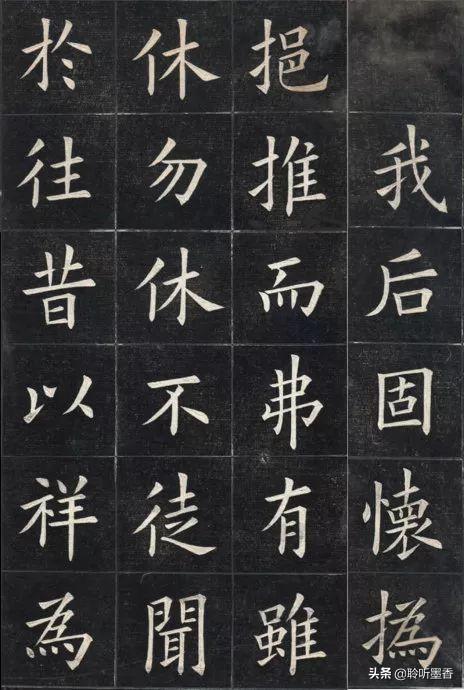 我后固懷撝
挹推而弗有雖
休勿休不徒聞
於往昔以祥為
头条 @聆听墨香